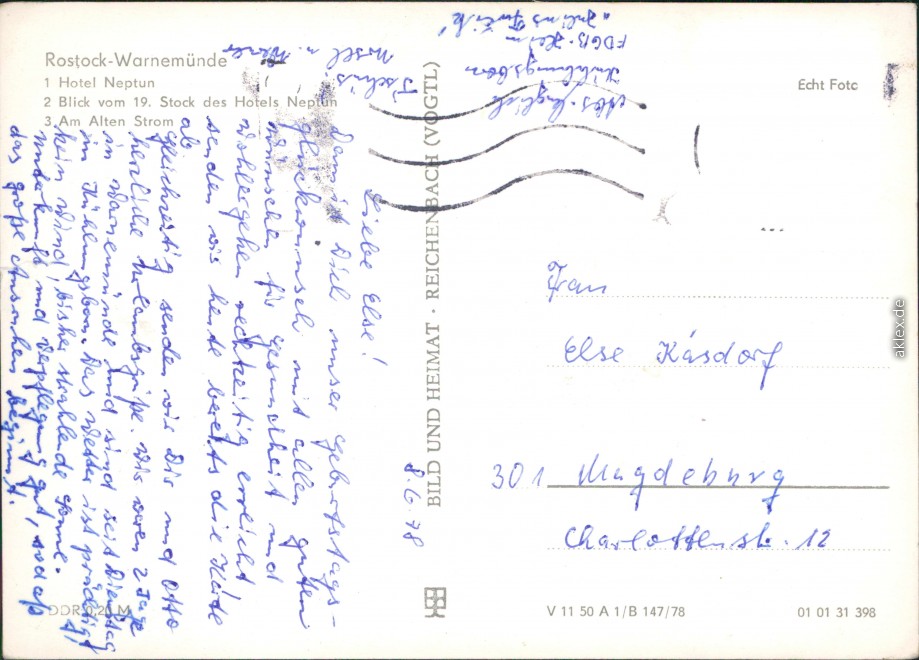 Rostock-Warnemünde
1 Hotel Neptun
2 Blick vom 19. Stock des Hotels Neptun
3 Am Alten Strom
Echt Foto
BILD UND HEIMAT · REICHENBACH (VOGTL)
8.6.78
Liebe Else!
Damit Dich unser Geburtstags-
glückwunsch mit allen guten
Wünschen für Gesundheit und
Wohlergehen rechtzeitig erreicht
senden wir heute bereits die Karte
ab.
Gleichzeitig senden wir Dir und Otto
herzliche Urlaubsgrüße. Wir waren 2 Tage
in Warnemünde und sind seit Dienstag
in Kühlungsborn. Das Wetter ist prächtig,
kein Wind, bisher strahlende Sonne.
Unterkunft und Verpflegung gut, sodaß
das große Ausruhen beginnt.
Abs.
Kühlungsborn
FDGB-Heim
"Julius Fučik"
Frau
Else Käsdorf
301 Magdeburg
Charlottenstr. 12
DDR 0,20 M
V 11 50 A 1/B 147/78
01 01 31 398
aklex.de